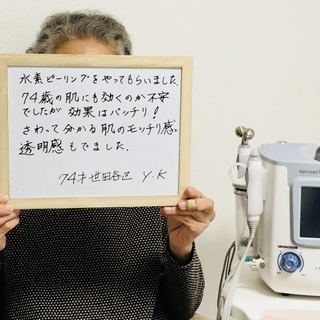 水素ピーリングをやってもらいました。
74歳の肌にも効くのか不安
でしたが効果はバッチリ!
さわって分かる肌のモッチリ感、
透明感もでました。
74才 世田谷区 Y.K